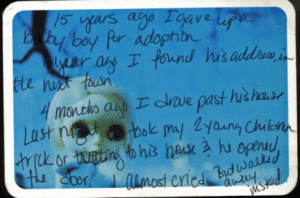 15 years ago I gave up a
baby boy for adoption
year ago I found his address, in
the next town.
4 months ago I drove past his house
Last night I took my 2 young children
trick or treating to his house & he opened
the door. I almost cried But walked
away
instead